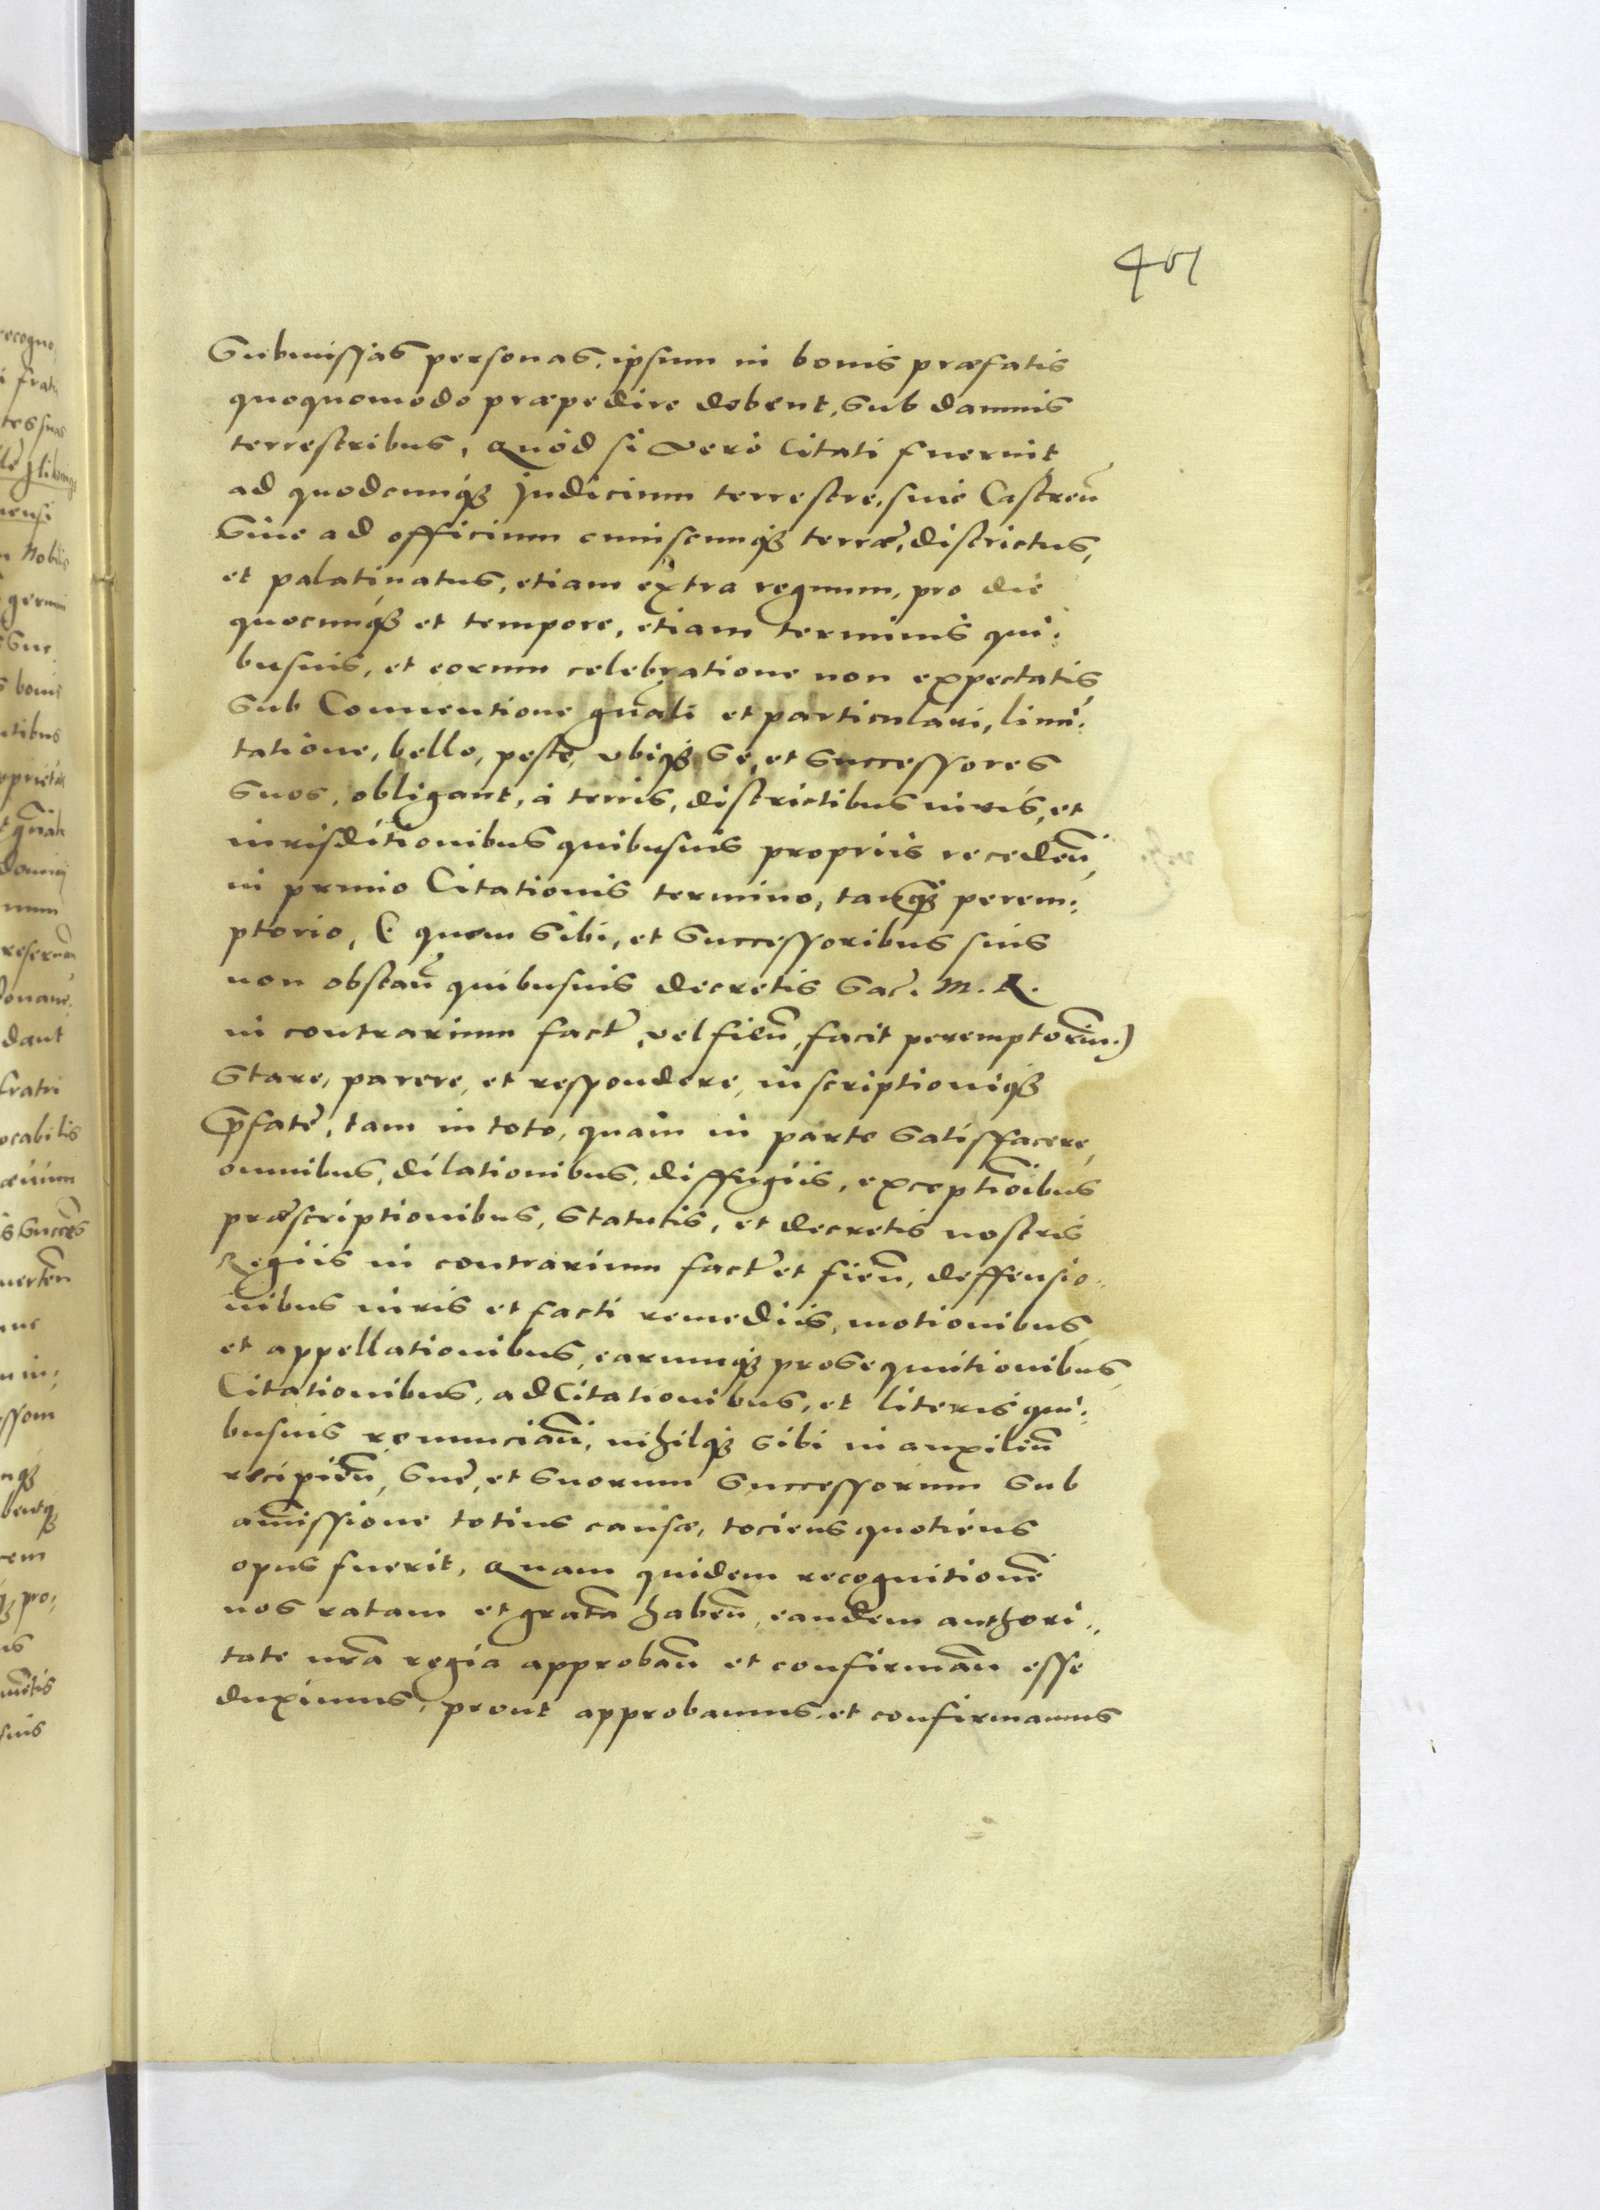 401
Submissas personas, ipsum in bonis præfatis
quoquomodo præpedire debent, sub damnis
terrestribus, Quòd si vero Citati fuerint
ad quodcunq₃ Judicium terrestre, siue Castreñ
Siue ad officium cuiuscunq₃ terræ, districtus,
et palatinatus, etiam extra regnum, pro die
quocunq₃ et tempore, etiam terminis qui:
busuis, et eorum celebratione non expectatis,
Sub Conuentione gñali et particulari, limi:
tatione, bello, peste, vbiq₃ Se, et Successores
Suos, obligant, à terris, districtibus iuris, et
iurisditionibus quibusuis propriis recedeñ,
in primo Citationis termino, tanq₃ perem:
ptorio, (: quem Sibi, et Successoribus suis
non obstañ quibusuis decretis Sac. M. R.
in contrarium fact, vel fieñ, facit peremptoriũ:)
Stare, parere, et respondere, inscriptioniq₃
p̃fate, tam in toto, quam in parte Satisfacere,
omnibus, dilationibus, diffugiis, exceptiõibus
præscriptionibus, Statutis, et decretis nostris
Regiis in contrarium fact et fieñ, deffensio..
nibus iuris et facti remediis, motionibus,
et appellationibus, earumq₃ prosequutionibus,
Citationibus, adCitationibus, et literis qui:
busuis renunciañ, nihilq₃ Sibi in auxiliũ
recipieñ, Sue, et Suorum Successorum Sub
am̃issione totius causæ, tociens quotiens
opus fuerit, Quam quidem recognitionẽ
nos ratam et gratã habeñ, eandem authori..
tate nr̃a regia approbañ et confirmañ esse
duximus, prout approbamus et confirmamus